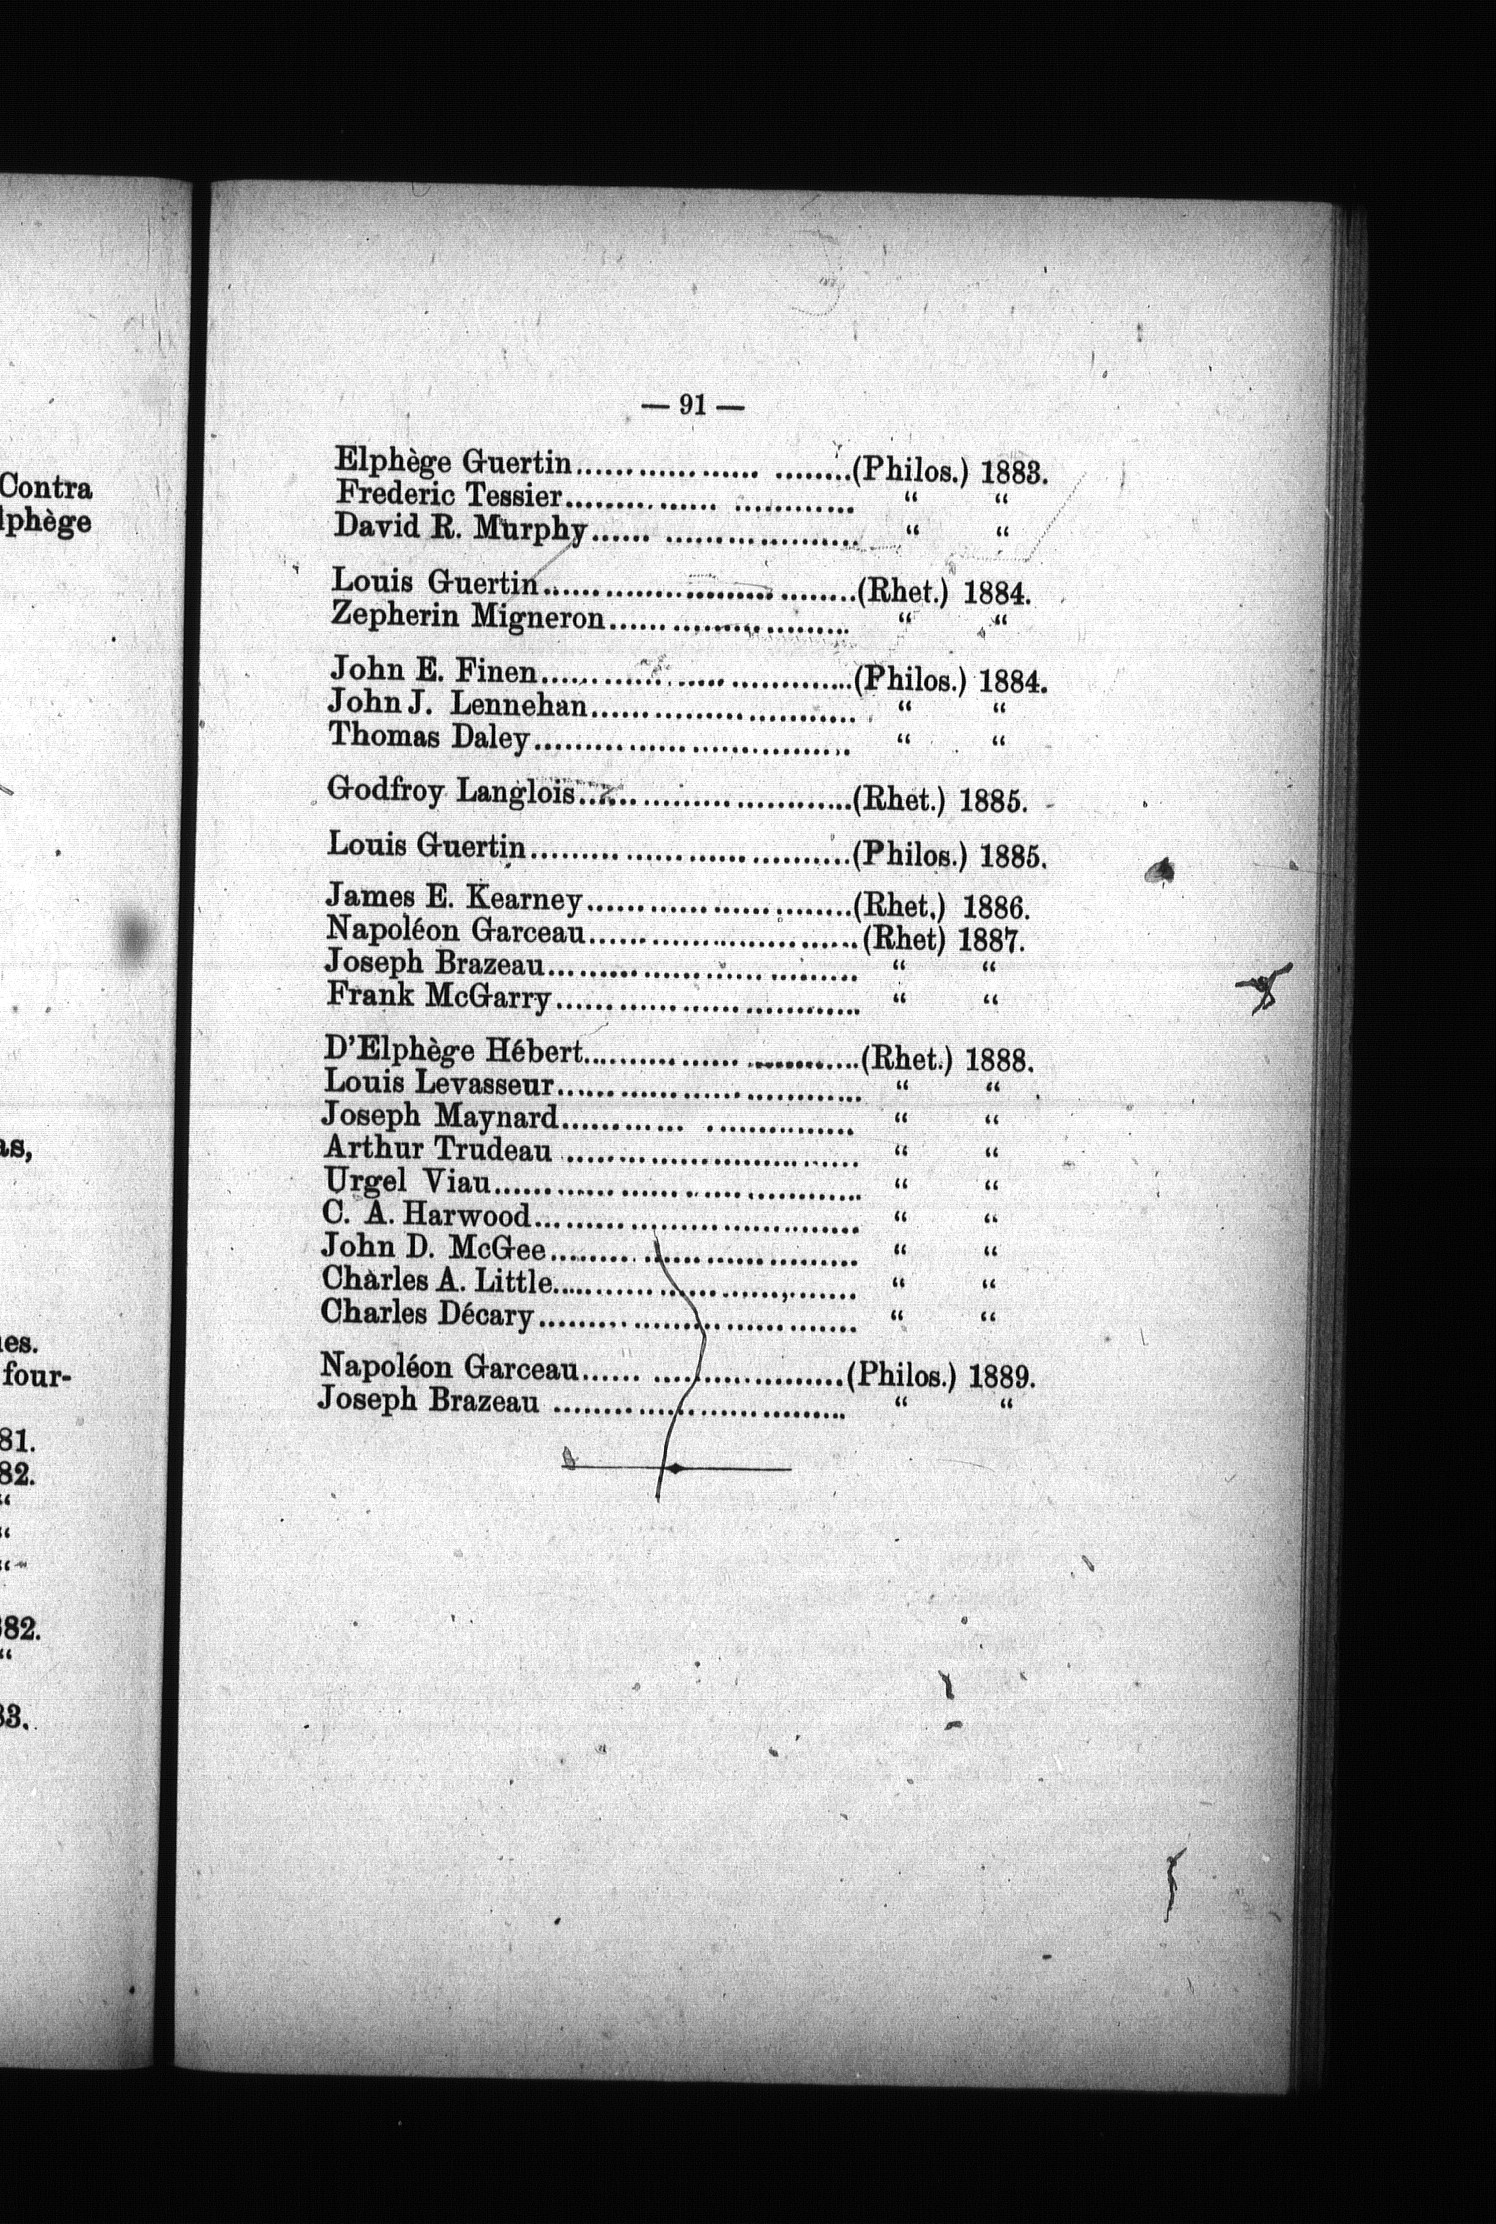 Contra
lphège
as,
four-
81.
82.
“
“
“
82.
“
33.
— 91 —
Elphège Guertin........................... (Philos.) 1883.
Frederic Tessier........................... “ “
David R. Murphy........................... “ “
Louis Guertin........................... (Rhet.) 1884.
Zepherin Migneron........................... “ “
John E. Finen........................... (Philos.) 1884.
John J. Lennehan........................... “ “
Thomas Daley........................... “ “
Godfroy Langlois........................... (Rhet.) 1885.
Louis Guertin........................... (Philos.) 1885.
James E. Kearney........................... (Rhet.) 1886.
Napoléon Garceau........................... (Rhet) 1887.
Joseph Brazeau........................... “ “
Frank McGarry........................... “ “
D'Elphège Hébert........................... (Rhet.) 1888.
Louis Levasseur........................... “ “
Joseph Maynard........................... “ “
Arthur Trudeau........................... “ “
Urgel Viau........................... “ “
C. A. Harwood........................... “ “
John D. McGee........................... “ “
Charles A. Little........................... “ “
Charles Décary........................... “ “
Napoléon Garceau........................... (Philos.) 1889.
Joseph Brazeau........................... “ “